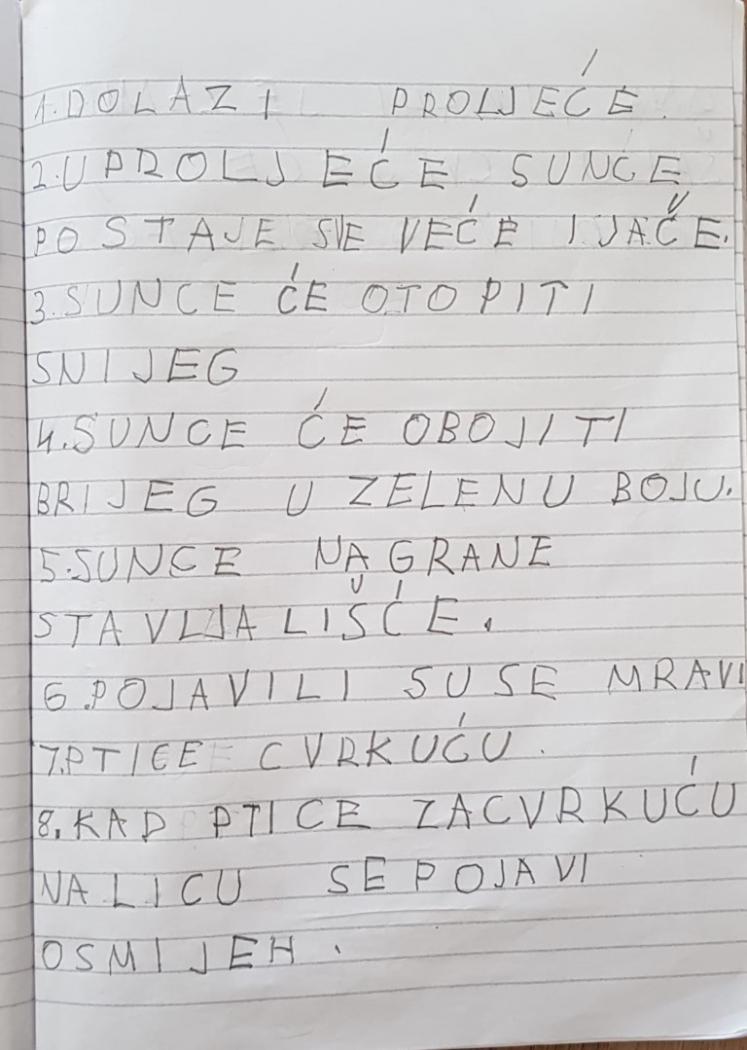 1. DOLAZI PROLJEĆE.
2. U PROLJEĆE SUNCE
POSTAJE SVE VEĆE I JAČE.
3. SUNCE ĆE OTOPITI
SNIJEG
4. SUNCE ĆE OBOJITI
BRIJEG U ZELENU BOJU.
5. SUNCE NA GRANE
STAVLJA LIŠĆE.
6. POJAVILI SU SE MRAVI
7. PTICE CVRKUĆU.
8. KAD PTICE ZACVRKUĆU
NA LICU SE POJAVI
OSMIJEH.